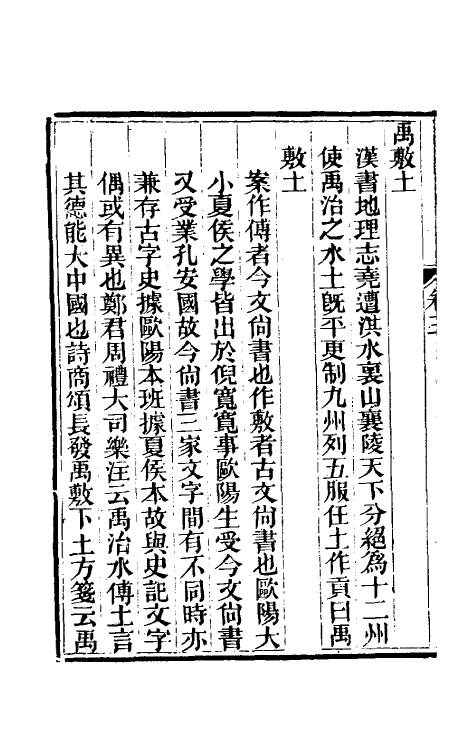 禹敷土
漢書地理志堯遭洪水褱山襄陵天下分絕爲十二州
使禹治之水土旣平更制九州列五服任土作貢曰禹
敷土
案作傅者今文尙書也作敷者古文尙書也歐陽大
小夏侯之學皆出於倪寬寬事歐陽生受今文尙書
又受業孔安國故今尙書三家文字間有不同時亦
兼存古字史據歐陽本班據夏侯本故與史記文字
偶或有異也鄭君周禮大司樂注云禹治水傅土言
其德能大中國也詩商頌長發禹敷下土方箋云禹